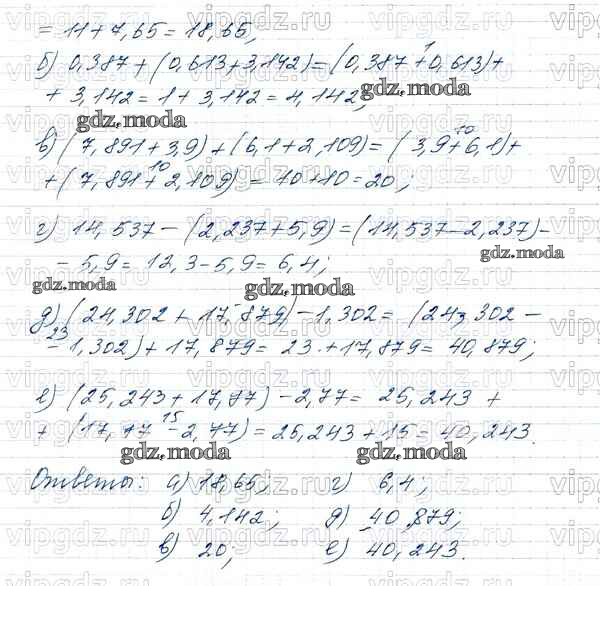 = 11 + 7,65 = 18,65;
б) 0,387 + (0,613 + 3,142) = (0,387 + 0,613) +
+ 3,142 = 1 + 3,142 = 4,142;
в) (7,891 + 3,9) + (6,1 + 2,109) = (3,9 + 6,1) +
+ (7,891 + 2,109) = 10 + 10 = 20;
г) 14,537 − (2,237 + 5,9) = (14,537 − 2,237) −
− 5,9 = 12,3 − 5,9 = 6,4;
д) (24,302 + 17,879) − 1,302 = (24,302 −
− 1,302) + 17,879 = 23 + 17,879 = 40,879;
е) (25,243 + 17,77) − 2,77 = 25,243 +
+ (17,77 − 2,77) = 25,243 + 15 = 40,243.
Ответы: а) 18,65; г) 6,4;
б) 4,142; д) 40,879;
в) 20; е) 40,243.